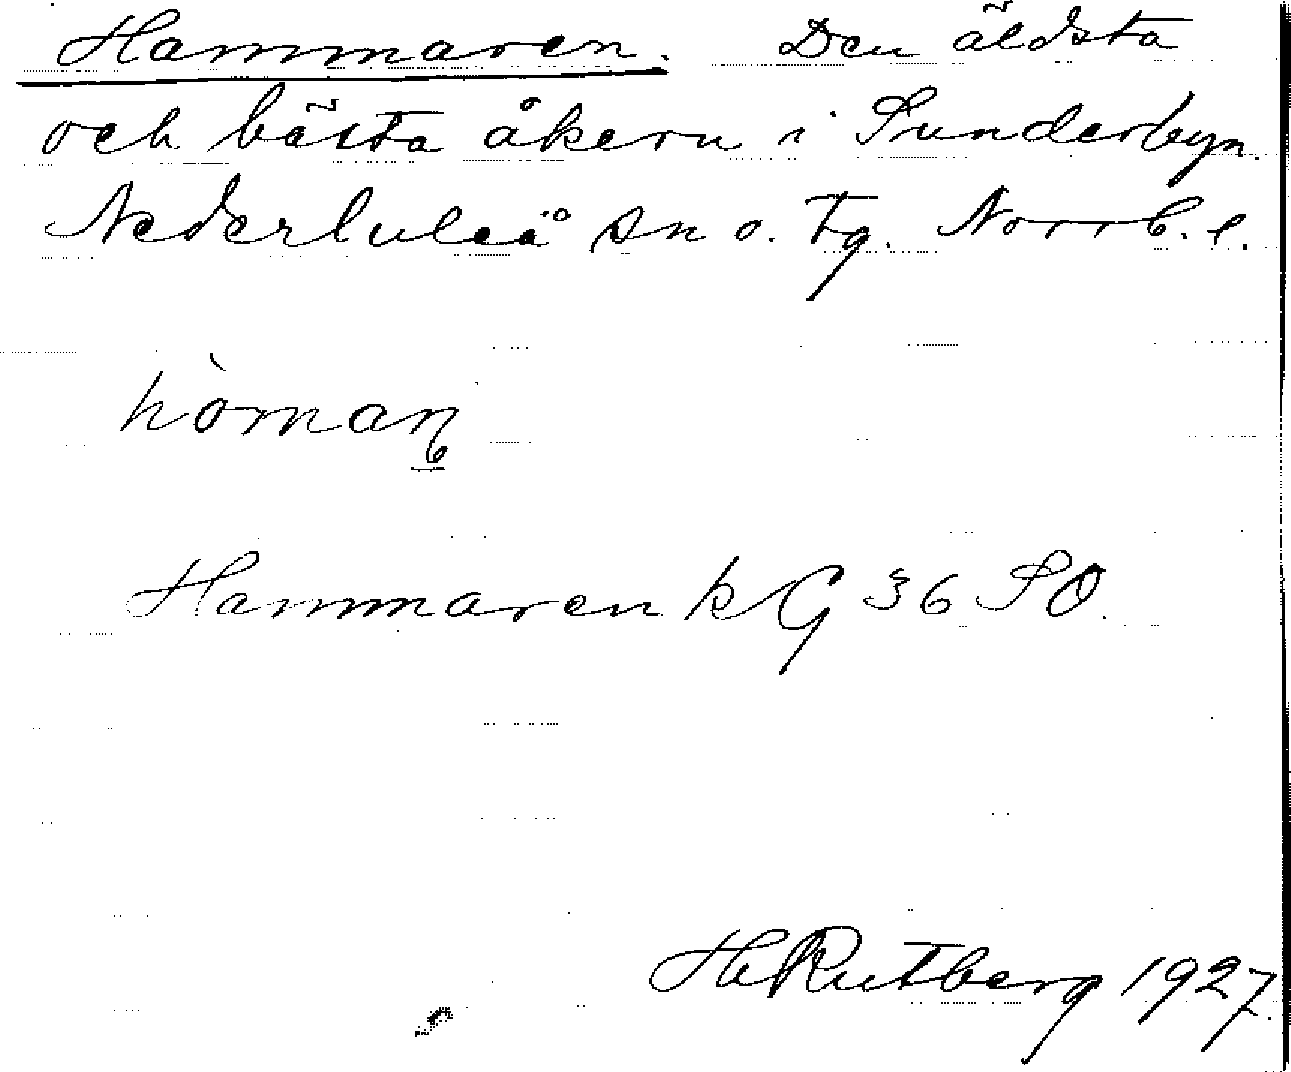 Hammaren. Den äldsta
och bästa åkern i Sunderbyn.
Nederluleå sn o. tg. Norrb. l.
hòman
Hammaren kG 36 SO.
HRutberg 1927